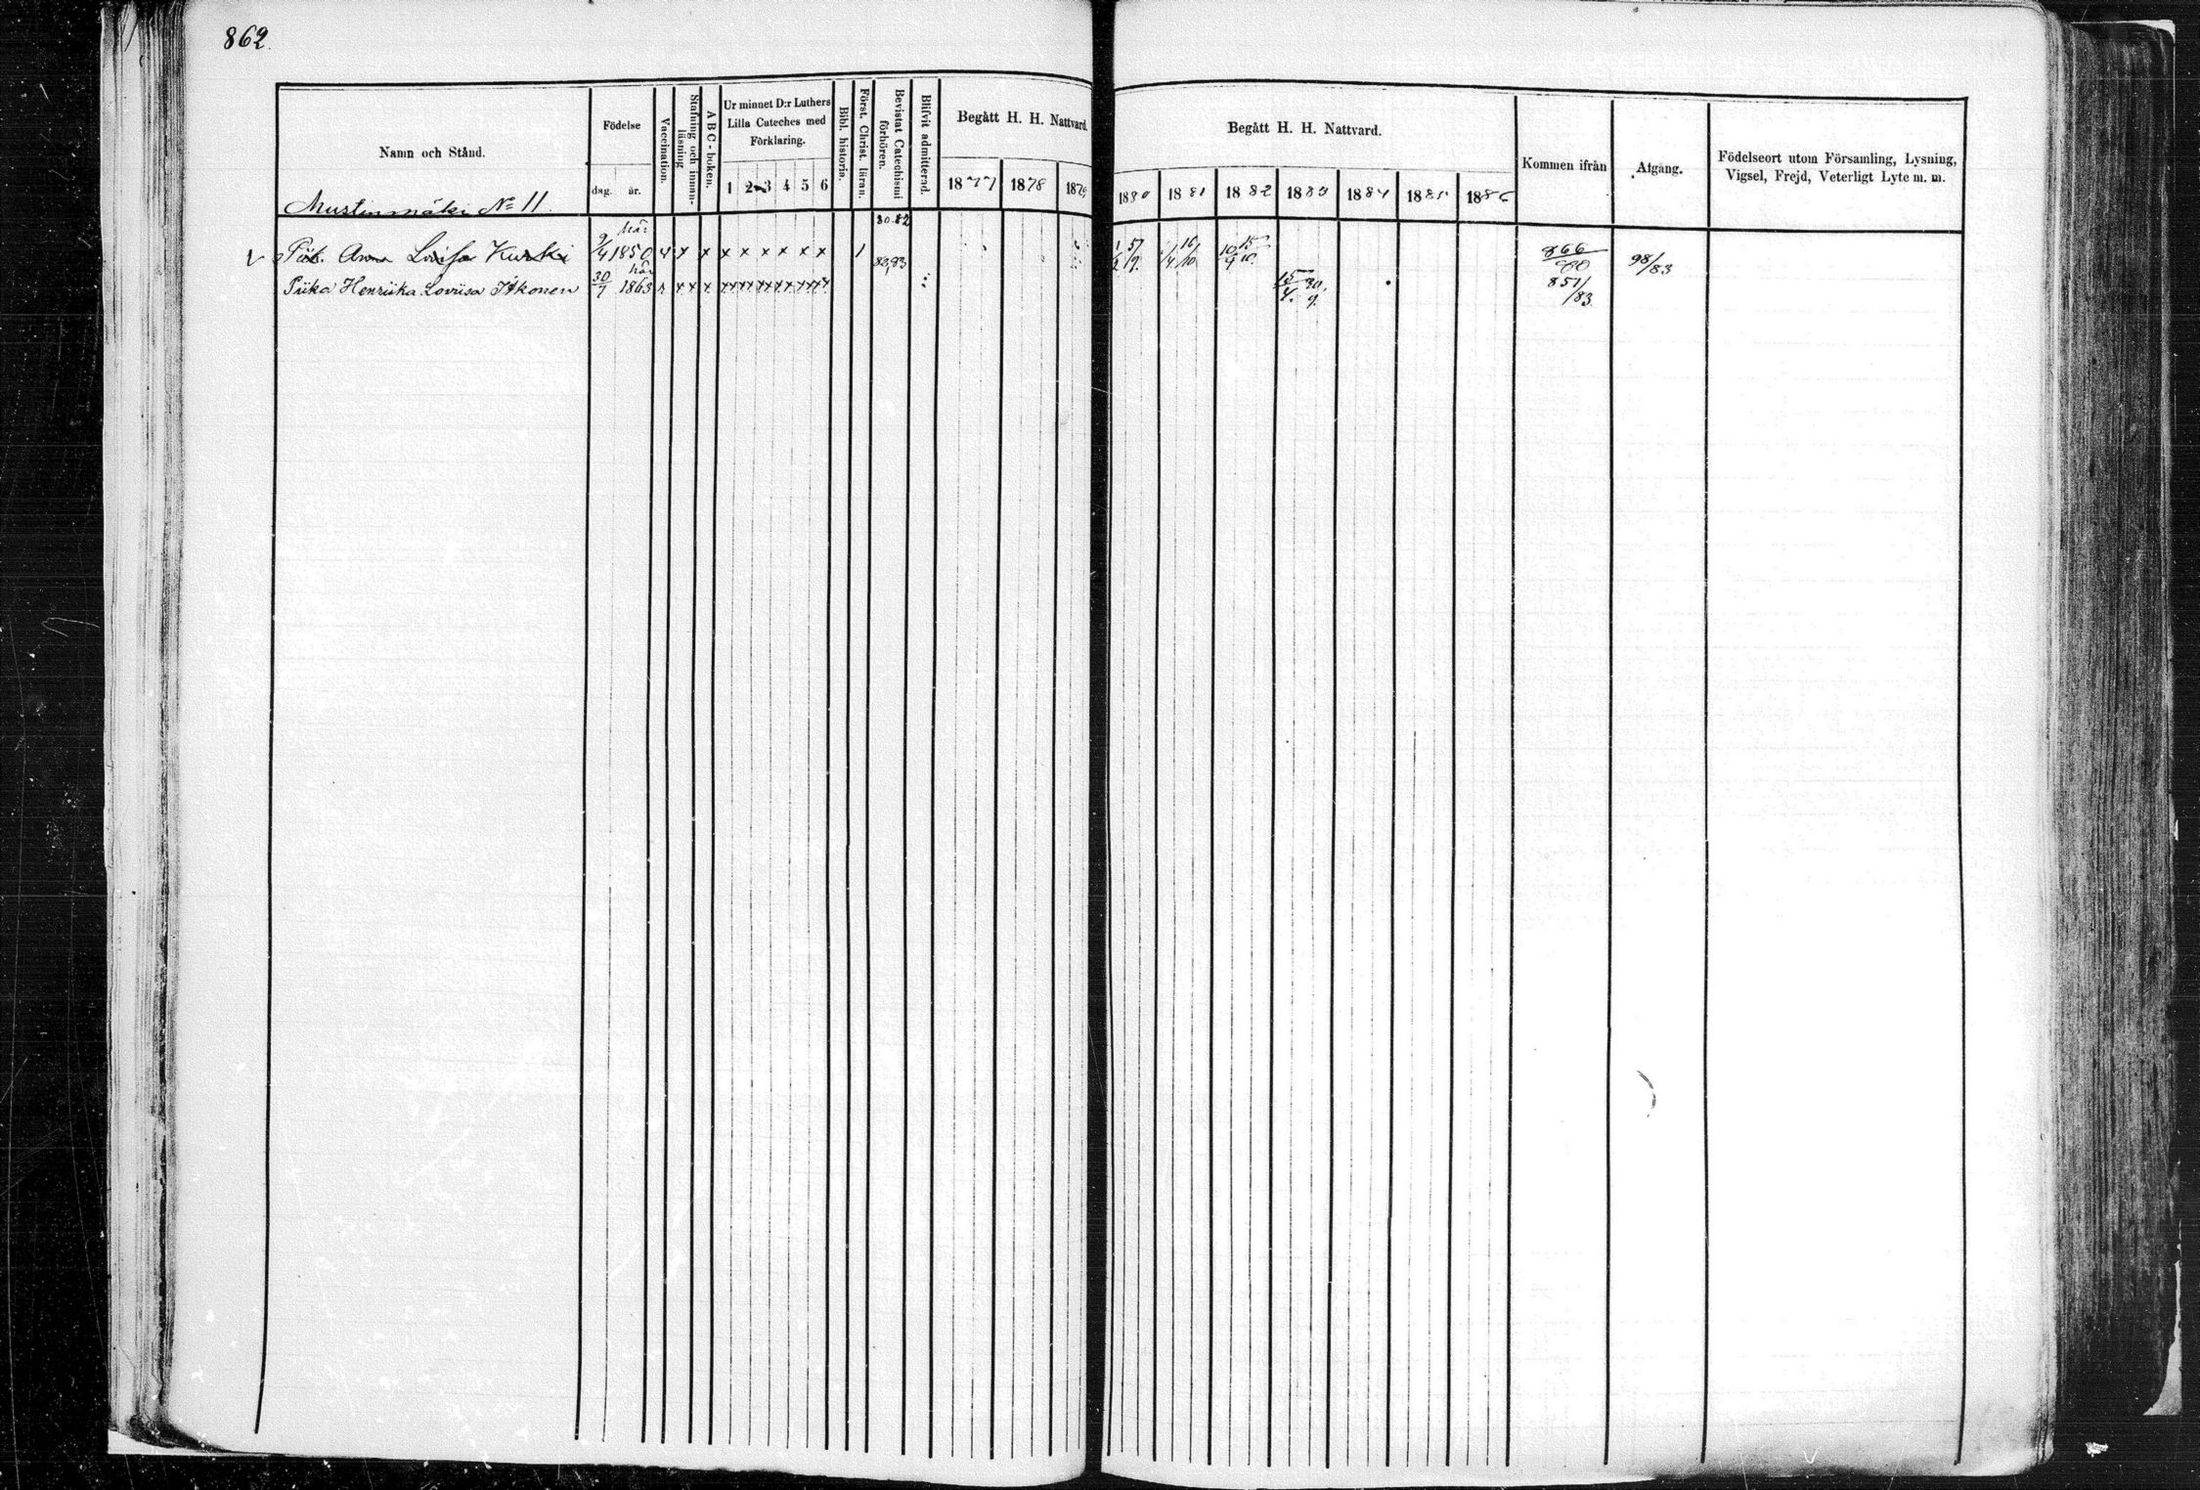 862.
Namn och Stånd.
Mustinmäki No 11.
Födelse
dag. år.
Vaccination.
Stafning och innan-
läsning
A B C - boken.
Ur minnet D:r Luthers
Lilla Cateches med
Förklaring.
1 2 3 4 5 6
Bibl. historia.
Först. Christ. läran.
Bevistat Catechismi
förhören.
Blifvit admitterad.
Begått H. H. Nattvard.
1877 1878 1879
Begått H. H. Nattvard.
1880 1881 1882 1883 1884 1885 1886
Kommen ifrån
Afgång.
Födelseort utom Församling, Lysning,
Vigsel, Frejd, Veterligt Lyte m. m.
80.82
här
Piik. Anna Loisa Kurski 9/4 1850 v x x x x x x x x 1 5/9 16/10 10/9 15/10 866/80 98/83
här 82,83
Piika Henriika Loviisa Itkonen 30/7 1863 x x x 15/4. 30/9. 851/83